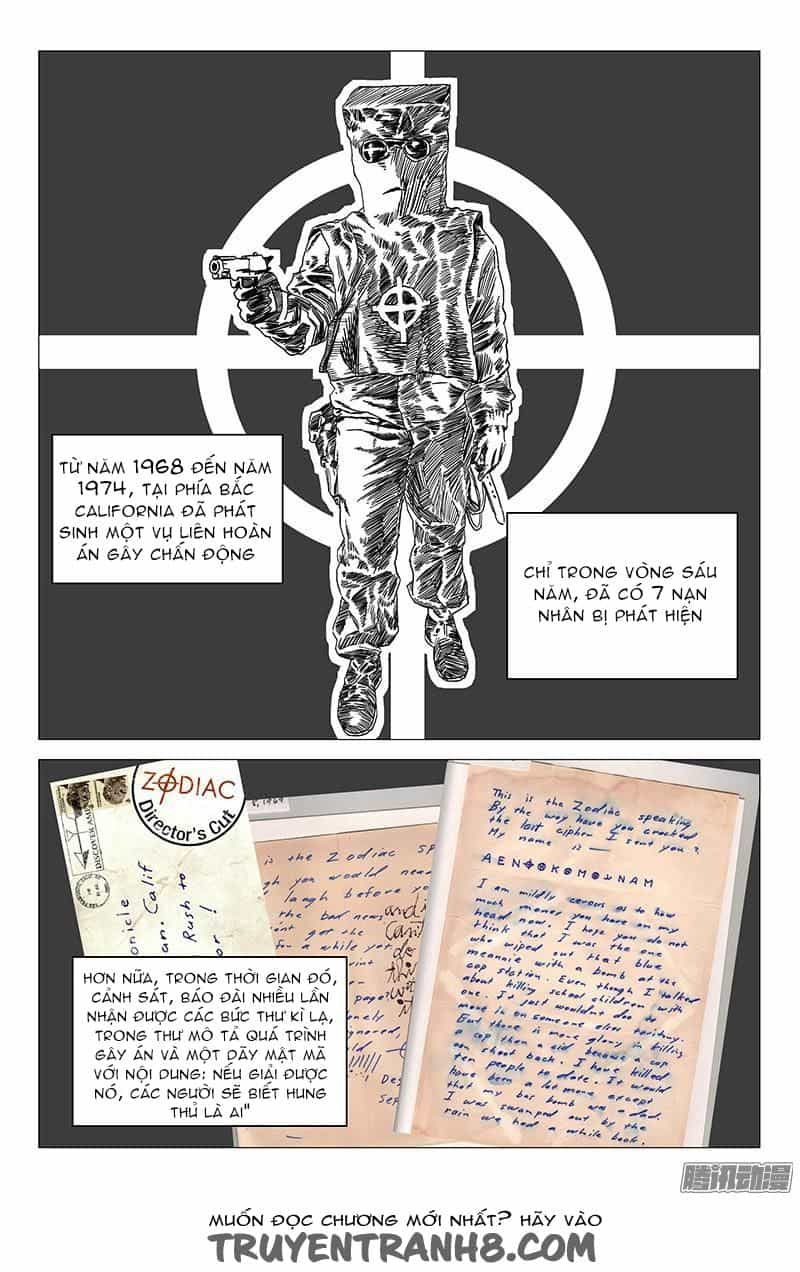 TỪ NĂM 1968 ĐẾN NĂM
1974, TẠI PHÍA BẮC
CALIFORNIA ĐÃ PHÁT
SINH MỘT VỤ LIÊN HOÀN
ÁN GÂY CHẤN ĐỘNG
CHỈ TRONG VÒNG SÁU
NĂM, ĐÃ CÓ 7 NẠN
NHÂN BỊ PHÁT HIỆN
ZODIAC
Director's Cut
DISCOVER
onicle
an. Calif
Rush to
or!
8, 1969
is the Zodiac sp
you would need
laugh before yo
the bad news
get the
for a while yet
This is the Zodiac speaking
By the way have you cracked
the last cipher I sent you?
My name is —
I am mildly cerous as to how
much money you have on my
head now. I hope you do not
think that I was the one
who wiped out that blue
meannie with a bomb at the
cop station. Even though I talked
about killing school children with
one. It just wouldnt do to
move in on someone elses teritory.
But there is more glory in killing
a cop then a cid because a cop
can shoot back. I have killed
ten people to date. It would
have been a lot more except
that my bus bomb was a dud.
I was swamped out by the
rain we had a while back.
HƠN NỮA, TRONG THỜI GIAN ĐÓ,
CẢNH SÁT, BÁO ĐÀI NHIỀU LẦN
NHẬN ĐƯỢC CÁC BỨC THƯ KÌ LẠ,
TRONG THƯ MÔ TẢ QUÁ TRÌNH
GÂY ÁN VÀ MỘT DÃY MẬT MÃ
VỚI NỘI DUNG: NẾU GIẢI ĐƯỢC
NÓ, CÁC NGƯỜI SẼ BIẾT HUNG
THỦ LÀ AI"
腾讯动漫
MUỐN ĐỌC CHƯƠNG MỚI NHẤT? HÃY VÀO
TRUYENTRANH8.COM